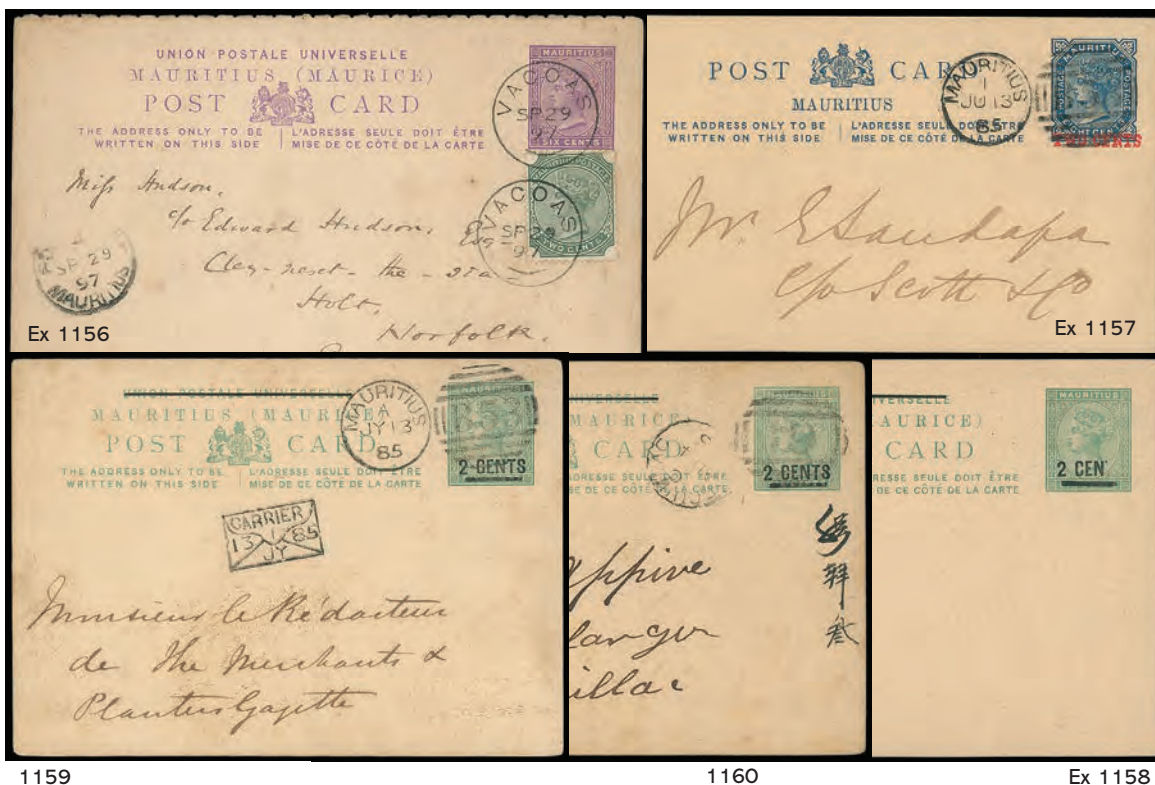 UNION POSTALE UNIVERSELLE
MAURITIUS (MAURICE)
POST CARD
THE ADDRESS ONLY TO BE WRITTEN ON THIS SIDE
L'ADRESSE SEULE DOIT ÊTRE MISE DE CE CÔTÉ DE LA CARTE
MAURITIUS
SIX CENTS
VACOAS
SP 29
97
TWO CENTS
VACOAS
SP 29
97
Miss Hudson,
c/o Edward Hudson, Esq
Cley-next-the-sea
Holt,
Norfolk.
SP 29
97
MAURITIUS
Ex 1156
POST CARD
MAURITIUS
THE ADDRESS ONLY TO BE WRITTEN ON THIS SIDE
L'ADRESSE SEULE DOIT ÊTRE MISE DE CE CÔTÉ DE LA CARTE
MAURITIUS
1
JU 13
85
MAURITIUS
POSTAGE
POSTAGE
Mr. E
c/o Scott & Co
Ex 1157
UNION POSTALE UNIVERSELLE
MAURITIUS (MAURICE)
POST CARD
THE ADDRESS ONLY TO BE WRITTEN ON THIS SIDE
L'ADRESSE SEULE DOIT ÊTRE MISE DE CE CÔTÉ DE LA CARTE
MAURITIUS
A
JY 13
85
MAURITIUS
B53
2 CENTS
CARRIER
13 1 85
JY
Monsieur le Rédacteur
de The Merchants &
Planters Gazette
1159
VERSELLE
MAURICE)
CARD
RESSE SEULE DOIT ÊTRE
SE DE CE CÔTÉ DE LA CARTE
2 CENTS
appive
langer
illac
1160
VERSELLE
AURICE)
CARD
RESSE SEULE DOIT ÊTRE
DE CE CÔTÉ DE LA CARTE
MAURITIUS
2 CEN
Ex 1158